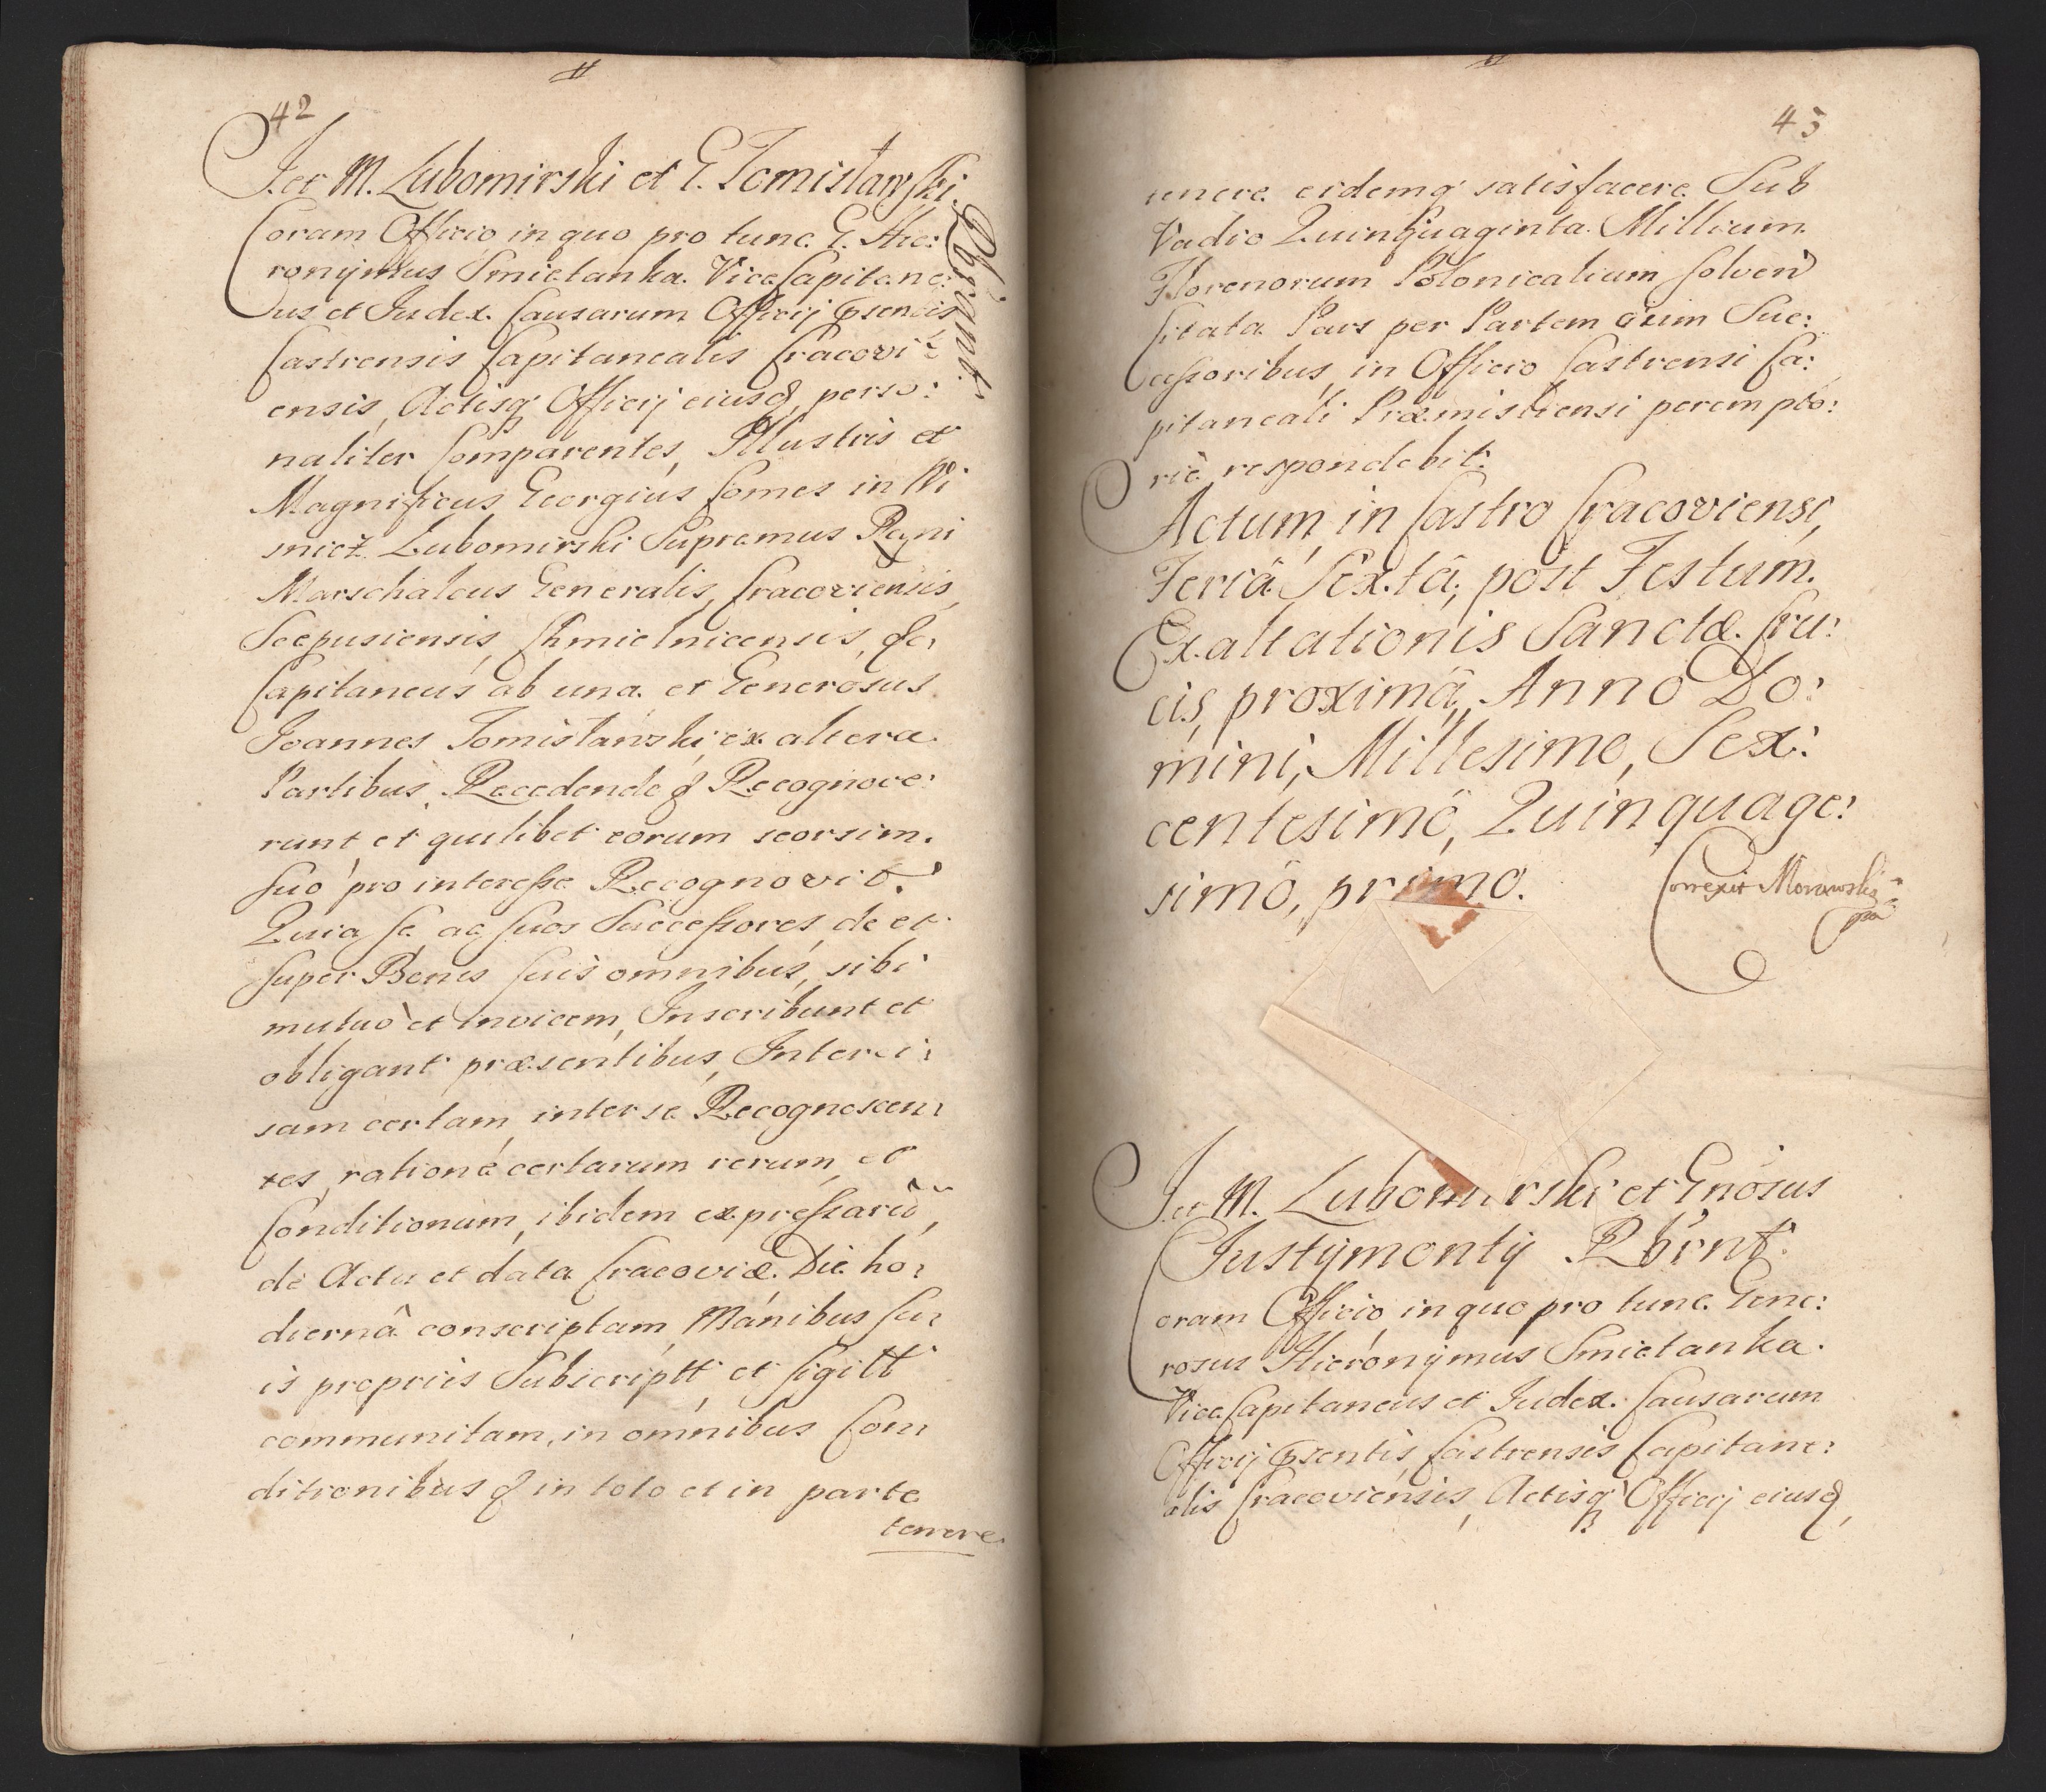 42
I. et M. Lubomirski et G. Tomisławski.
Rbrant.
Coram Officio in quo pro tunc G. Hie:
ronÿmus Smietanka ViceCapitane:
us et Iudex Causarum Officij psentis
Castrensis Capitanealis Cracovi:
ensis, Actisq Officij eiusd, perso:
naliter Comparentes, Illustris et
Magnificus Georgius Comes in Wi
snicz Lubomirski Supremus Regni
Marschalcus Generalis, Cracoviensis,
Scepusiensis, Chmielnicensis, &c,
Capitaneus ab una et Generosus
Ioannes Tomisławski, ex altera
Partibus, Recedendo & Recognove:
runt et quilibet eorum seorsim
suo pro interesse Recognovit.
Quia se ac suos Successores, de et
super Bonis suis omnibus, sibi
mutuò et invicem, Inscribunt et
obligant præsentibus, Interci:
sam certam, inter se Recognoscen:
tes, ratione certarum rerum, et
Conditionum, ibidem expressarū,
de Actu et data Cracoviæ Die ho:
diernâ conscriptam, Manibus su:
is proprijs Subscriptt et sigitt
communitam, in omnibus Con:
ditionibus & in toto et in parte
tenere
43
tenere eidemq satisfacere Sub
Vadio Quinquaginta Millium
Florenorum Polonicalium solven
Citata Pars per Partem aut eius Suc:
cessoribus, in Officio Castrensi Ca:
pitaneali Præmisliensi perempto:
riè respondebit.
Actum, in Castro Cracoviensi,
Feriâ Sextâ, post Festum
Exaltationis Sanctæ Cru:
cis, proximâ, Anno Do:
mini, Millesimo, Sex:
centesimô, Quinquage:
simô, primo.
Correxit Morawski
I. et M. Lubomirski et Gnosus
Iustÿmontÿ Rbrnt.
Coram Officio, in quo pro tunc Gene:
rosus Hieronÿmus Smietanka
ViceCapitaneus et Iudex Causarum
Officij psentis, Castrensis Capitane:
alis Cracoviensis, Actisq Officij eiusd,